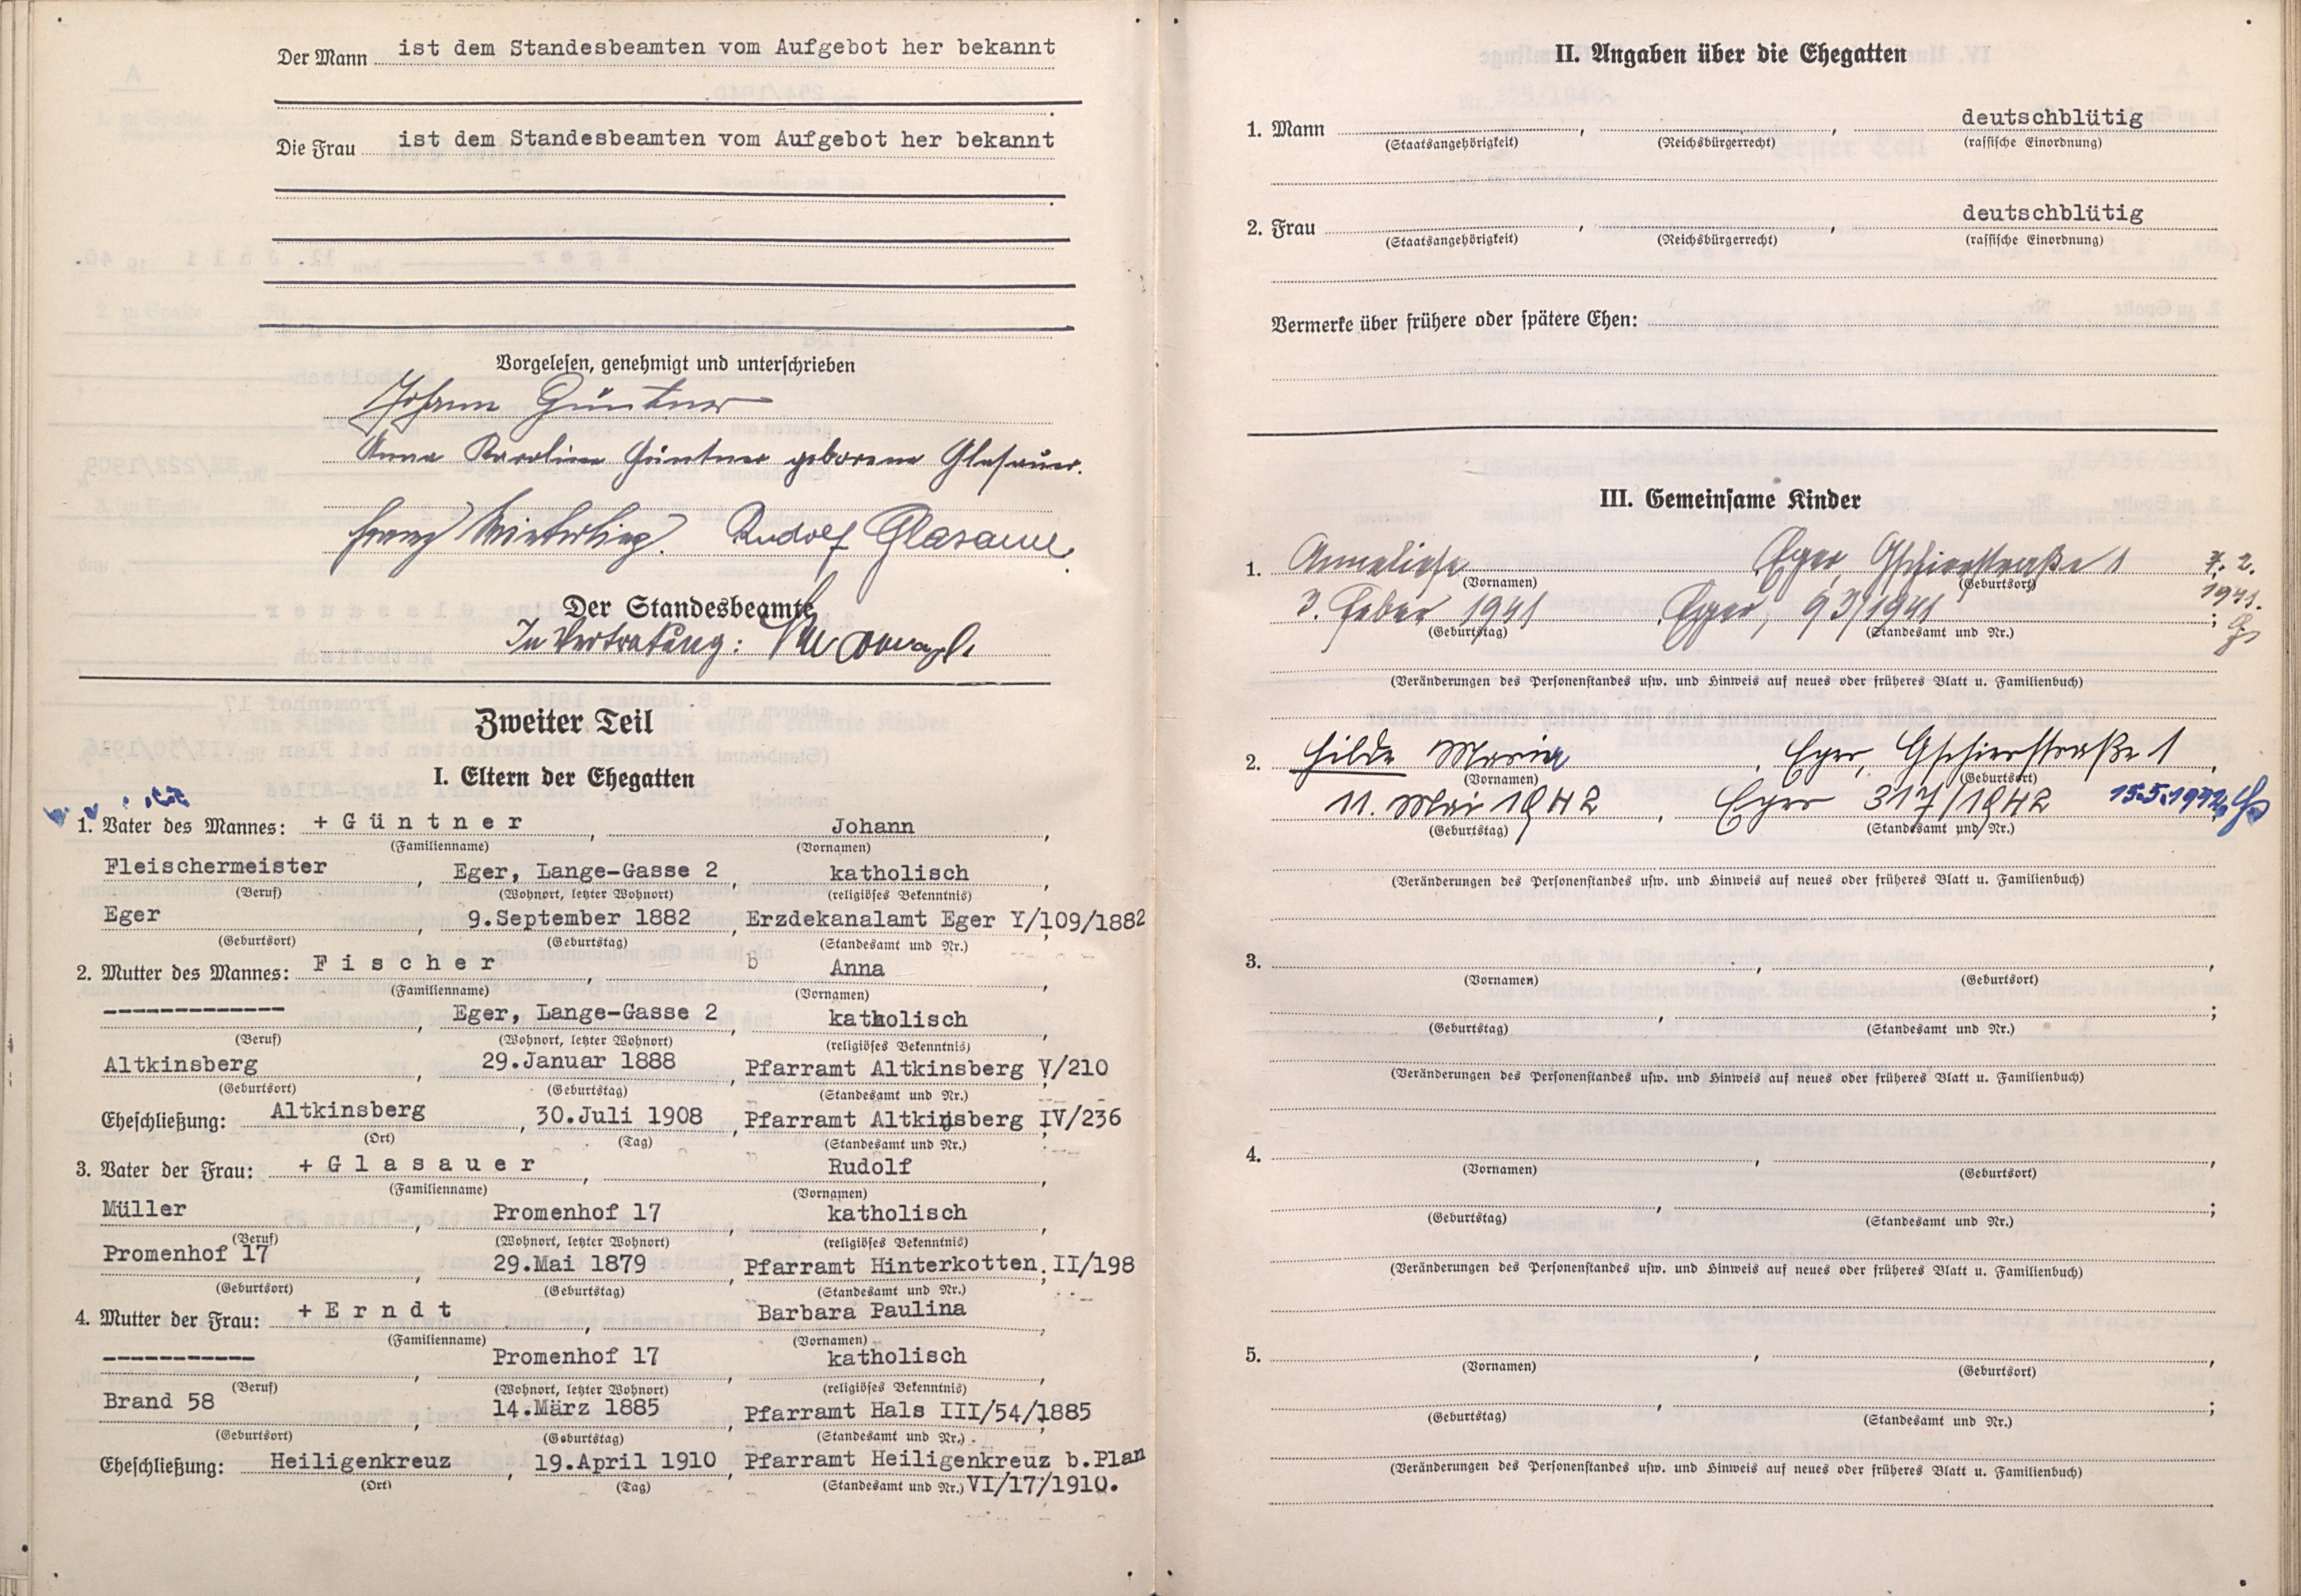 Der Mann ist dem Standesbeamten vom Aufgebot her bekannt
Die Frau ist dem Standesbeamten vom Aufgebot her bekannt
Vorgelesen, genehmigt und unterschrieben
Johann Güntner
Anna Karolina Güntner geborene Glasauer.
Franz Winterling. Rudolf Glasauer.
Der Standesbeamte
In Vertretung:
Zweiter Teil
I. Eltern der Ehegatten
1. Vater des Mannes: + Güntner, Johann,
(Familienname) (Vornamen)
Fleischermeister, Eger, Lange-Gasse 2, katholisch,
(Beruf) (Wohnort, letzter Wohnort) (religiöses Bekenntnis)
Eger, 9.September 1882, Erzdekanalamt Eger Y/109/1882;
(Geburtsort) (Geburtstag) (Standesamt und Nr.)
2. Mutter des Mannes: Fischer, Anna,
(Familienname) (Vornamen)
------------, Eger, Lange-Gasse 2, katholisch,
(Beruf) (Wohnort, letzter Wohnort) (religiöses Bekenntnis)
Altkinsberg, 29.Januar 1888, Pfarramt Altkinsberg V/210;
(Geburtsort) (Geburtstag) (Standesamt und Nr.)
Eheschließung: Altkinsberg, 30.Juli 1908, Pfarramt Altkinsberg IV/236
(Ort) (Tag) (Standesamt und Nr.)
3. Vater der Frau: + Glasauer, Rudolf,
(Familienname) (Vornamen)
Müller, Promenhof 17, katholisch,
(Beruf) (Wohnort, letzter Wohnort) (religiöses Bekenntnis)
Promenhof 17, 29.Mai 1879, Pfarramt Hinterkotten; II/198
(Geburtsort) (Geburtstag) (Standesamt und Nr.)
4. Mutter der Frau: + Erndt, Barbara Paulina,
(Familienname) (Vornamen)
------------, Promenhof 17, katholisch,
(Beruf) (Wohnort, letzter Wohnort) (religiöses Bekenntnis)
Brand 58, 14.März 1885, Pfarramt Hals III/54/1885;
(Geburtsort) (Geburtstag) (Standesamt und Nr.)
Eheschließung: Heiligenkreuz, 19.April 1910, Pfarramt Heiligenkreuz b.Plan
(Ort) (Tag) (Standesamt und Nr.) VI/17/1910.
II. Angaben über die Ehegatten
1. Mann , , deutschblütig
(Staatsangehörigkeit) (Reichsbürgerrecht) (rassische Einordnung)
2. Frau , , deutschblütig
(Staatsangehörigkeit) (Reichsbürgerrecht) (rassische Einordnung)
Vermerke über frühere oder spätere Ehen:
III. Gemeinsame Kinder
1. Anneliese, Eger, Gschierstraße 1 7. 2.
(Vornamen) (Geburtsort) 1941.
3. Feber 1941, Eger, 93/1941;
(Geburtstag) (Standesamt und Nr.)
(Veränderungen des Personenstandes usw. und Hinweis auf neues oder früheres Blatt u. Familienbuch)
2. Hilde Maria, Eger, Gschierstraße 1,
(Vornamen) (Geburtsort)
11. Mai 1942, Eger 317/1942 15.5.1942
(Geburtstag) (Standesamt und Nr.)
(Veränderungen des Personenstandes usw. und Hinweis auf neues oder früheres Blatt u. Familienbuch)
3. , ,
(Vornamen) (Geburtsort)
, ;
(Geburtstag) (Standesamt und Nr.)
(Veränderungen des Personenstandes usw. und Hinweis auf neues oder früheres Blatt u. Familienbuch)
4. , ,
(Vornamen) (Geburtsort)
, ;
(Geburtstag) (Standesamt und Nr.)
(Veränderungen des Personenstandes usw. und Hinweis auf neues oder früheres Blatt u. Familienbuch)
5. , ,
(Vornamen) (Geburtsort)
, ;
(Geburtstag) (Standesamt und Nr.)
(Veränderungen des Personenstandes usw. und Hinweis auf neues oder früheres Blatt u. Familienbuch)